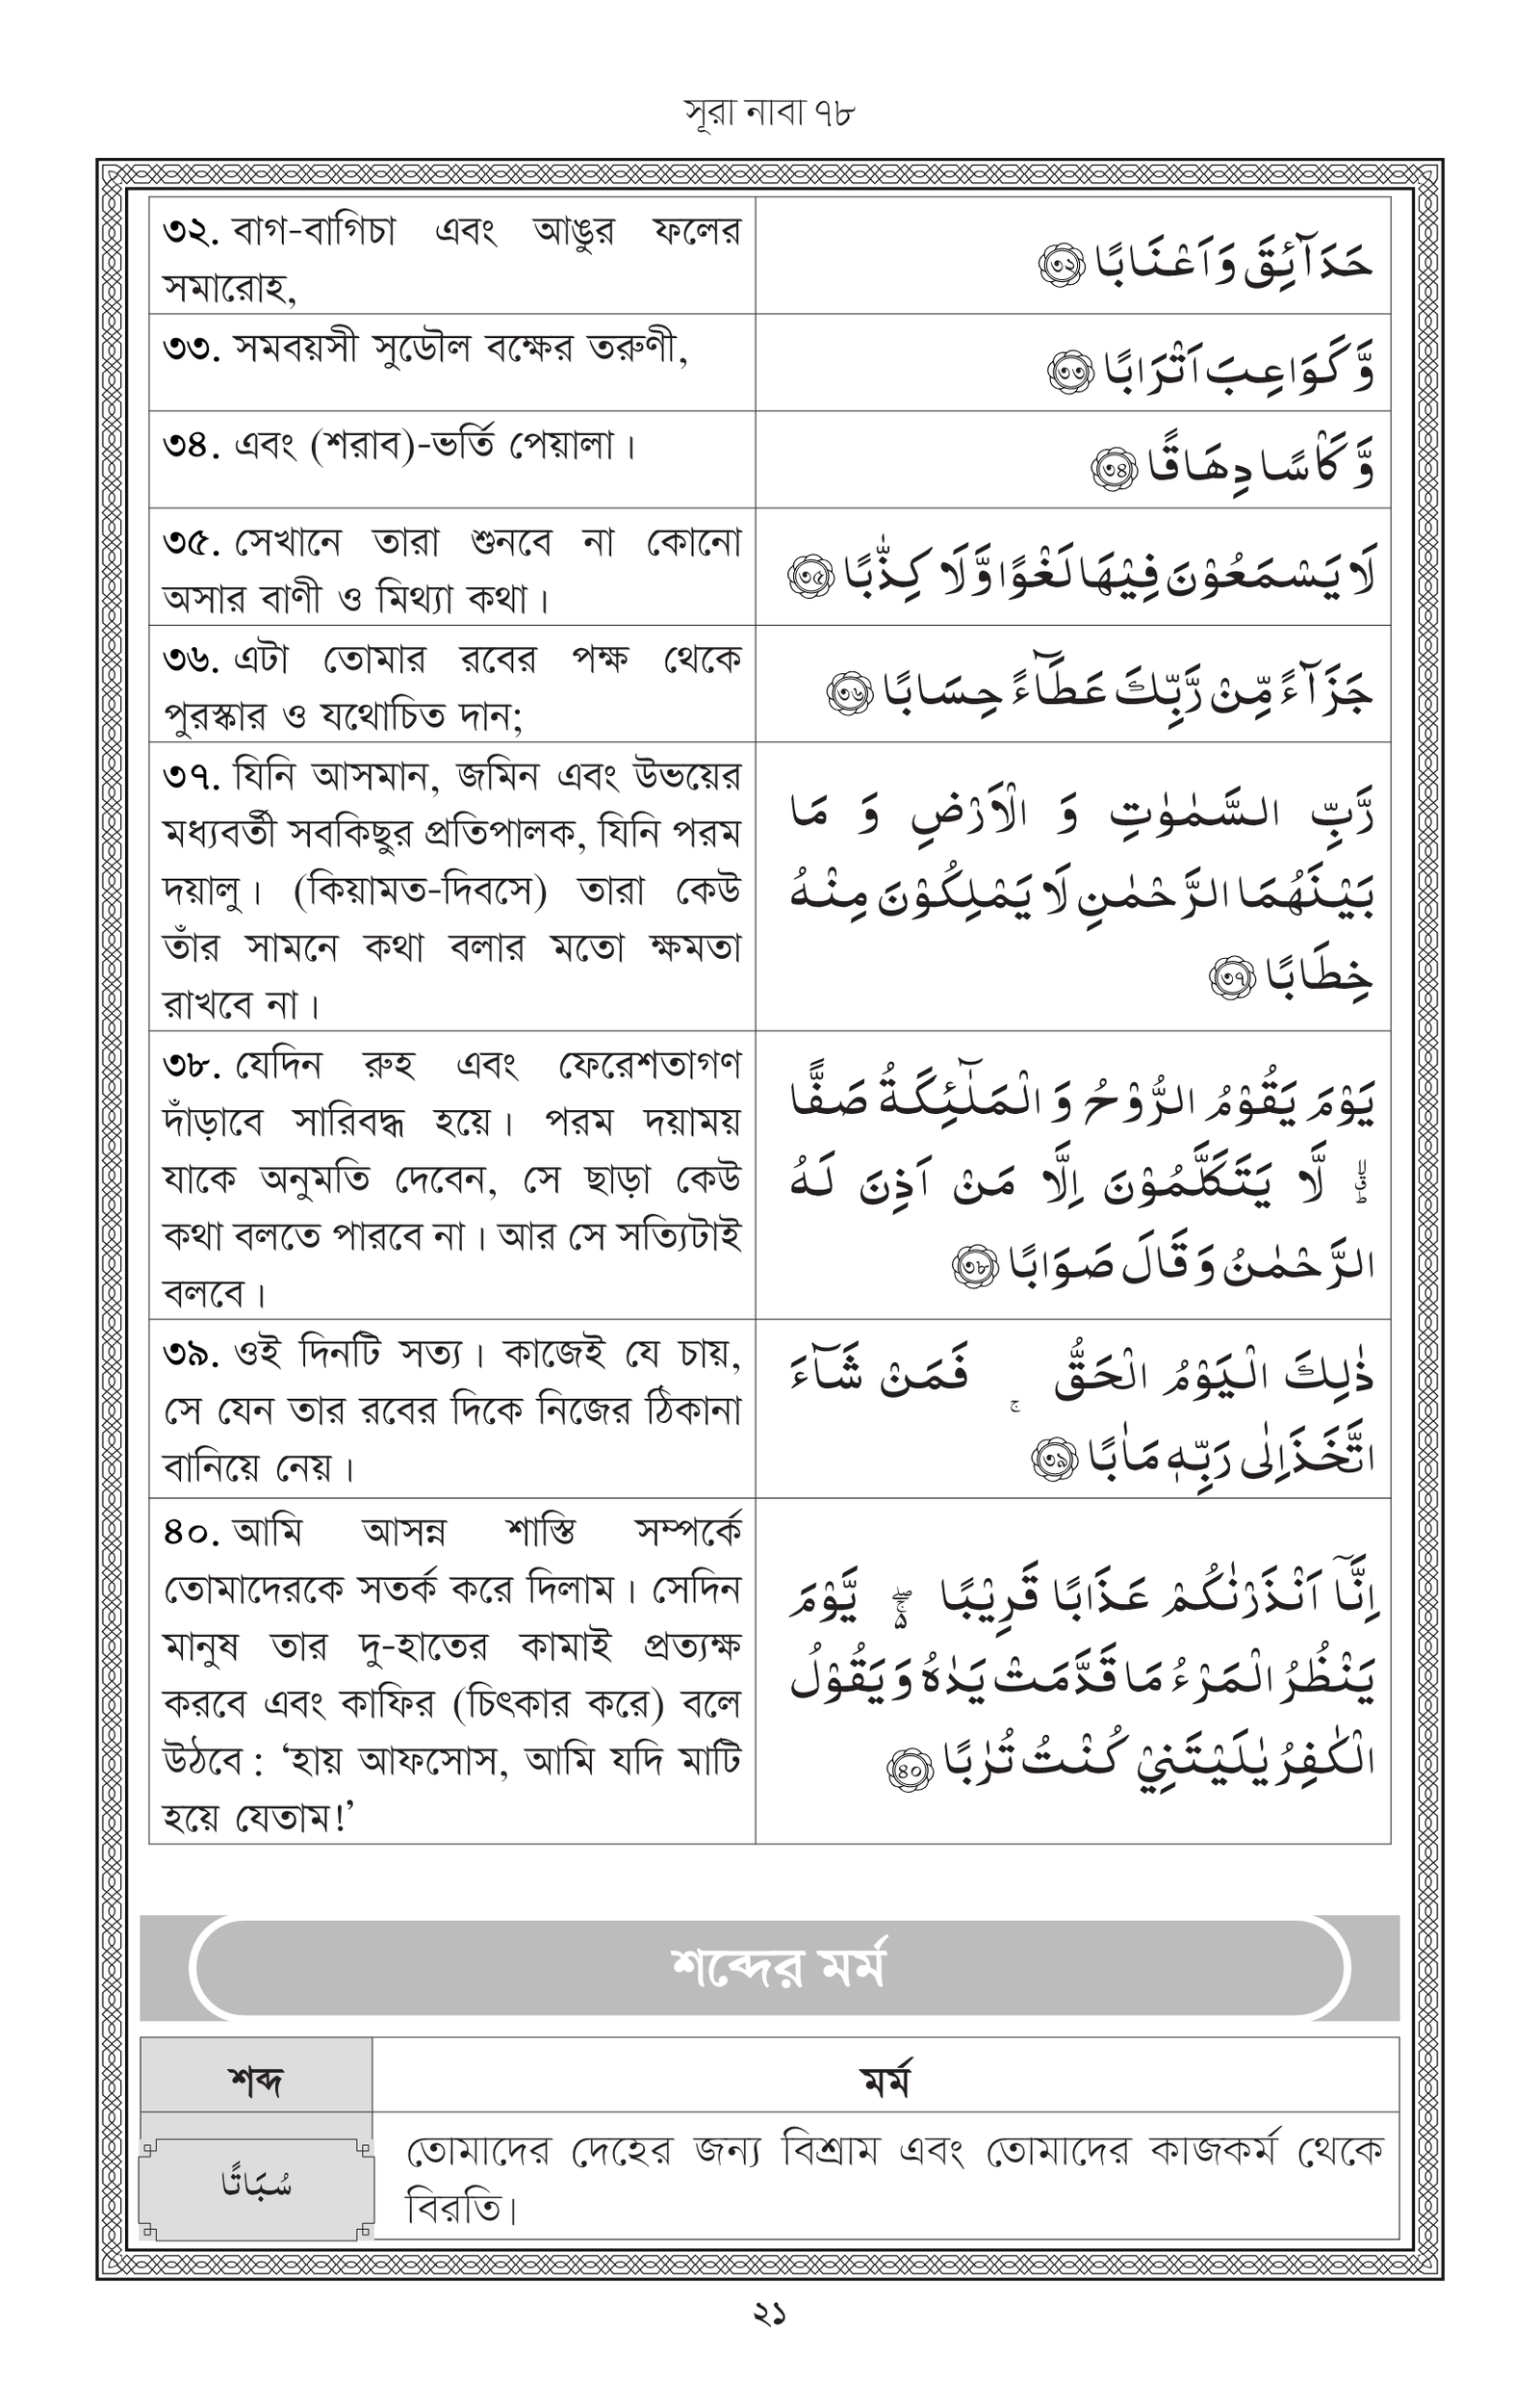 সূরা নাবা ৭৮
৩২. বাগ-বাগিচা এবং আঙুর ফলের
সমারোহ,
حَدَآئِقَ وَاَعْنَابًا ﴿৩২﴾
৩৩. সমবয়সী সুডৌল বক্ষের তরুণী,
وَّكَوَاعِبَ اَتْرَابًا ﴿৩৩﴾
৩৪. এবং (শরাব)-ভর্তি পেয়ালা।
وَّكَاْسًا دِهَاقًا ﴿৩৪﴾
৩৫. সেখানে তারা শুনবে না কোনো
অসার বাণী ও মিথ্যা কথা।
لَا يَسْمَعُوْنَ فِيْهَا لَغْوًا وَّلَا كِذّٰبًا ﴿৩৫﴾
৩৬. এটা তোমার রবের পক্ষ থেকে
পুরস্কার ও যথোচিত দান;
جَزَآءً مِّنْ رَّبِّكَ عَطَآءً حِسَابًا ﴿৩৬﴾
৩৭. যিনি আসমান, জমিন এবং উভয়ের
মধ্যবর্তী সবকিছুর প্রতিপালক, যিনি পরম
দয়ালু। (কিয়ামত-দিবসে) তারা কেউ
তাঁর সামনে কথা বলার মতো ক্ষমতা
রাখবে না।
رَّبِّ السَّمٰوٰتِ وَ الْاَرْضِ وَ مَا
بَيْنَهُمَا الرَّحْمٰنِ لَا يَمْلِكُوْنَ مِنْهُ
خِطَابًا ﴿৩৭﴾
৩৮. যেদিন রুহ এবং ফেরেশতাগণ
দাঁড়াবে সারিবদ্ধ হয়ে। পরম দয়াময়
যাকে অনুমতি দেবেন, সে ছাড়া কেউ
কথা বলতে পারবে না। আর সে সত্যিটাই
বলবে।
يَوْمَ يَقُوْمُ الرُّوْحُ وَ الْمَلٰٓئِكَةُ صَفًّا
لَّا يَتَكَلَّمُوْنَ اِلَّا مَنْ اَذِنَ لَهُ
الرَّحْمٰنُ وَقَالَ صَوَابًا ﴿৩৮﴾
৩৯. ওই দিনটি সত্য। কাজেই যে চায়,
সে যেন তার রবের দিকে নিজের ঠিকানা
বানিয়ে নেয়।
ذٰلِكَ الْيَوْمُ الْحَقُّ ۚ فَمَنْ شَآءَ
اتَّخَذَ اِلٰى رَبِّهٖ مَاٰبًا ﴿৩৯﴾
৪০. আমি আসন্ন শাস্তি সম্পর্কে
তোমাদেরকে সতর্ক করে দিলাম। সেদিন
মানুষ তার দু-হাতের কামাই প্রত্যক্ষ
করবে এবং কাফির (চিৎকার করে) বলে
উঠবে : ‘হায় আফসোস, আমি যদি মাটি
হয়ে যেতাম!’
اِنَّآ اَنْذَرْنٰكُمْ عَذَابًا قَرِيْبًا يَّوْمَ
يَنْظُرُ الْمَرْءُ مَا قَدَّمَتْ يَدٰهُ وَيَقُوْلُ
الْكٰفِرُ يٰلَيْتَنِيْ كُنْتُ تُرٰبًا ﴿৪০﴾
শব্দের মর্ম
শব্দ
মর্ম
سُبَاتًا
তোমাদের দেহের জন্য বিশ্রাম এবং তোমাদের কাজকর্ম থেকে
বিরতি।
২১